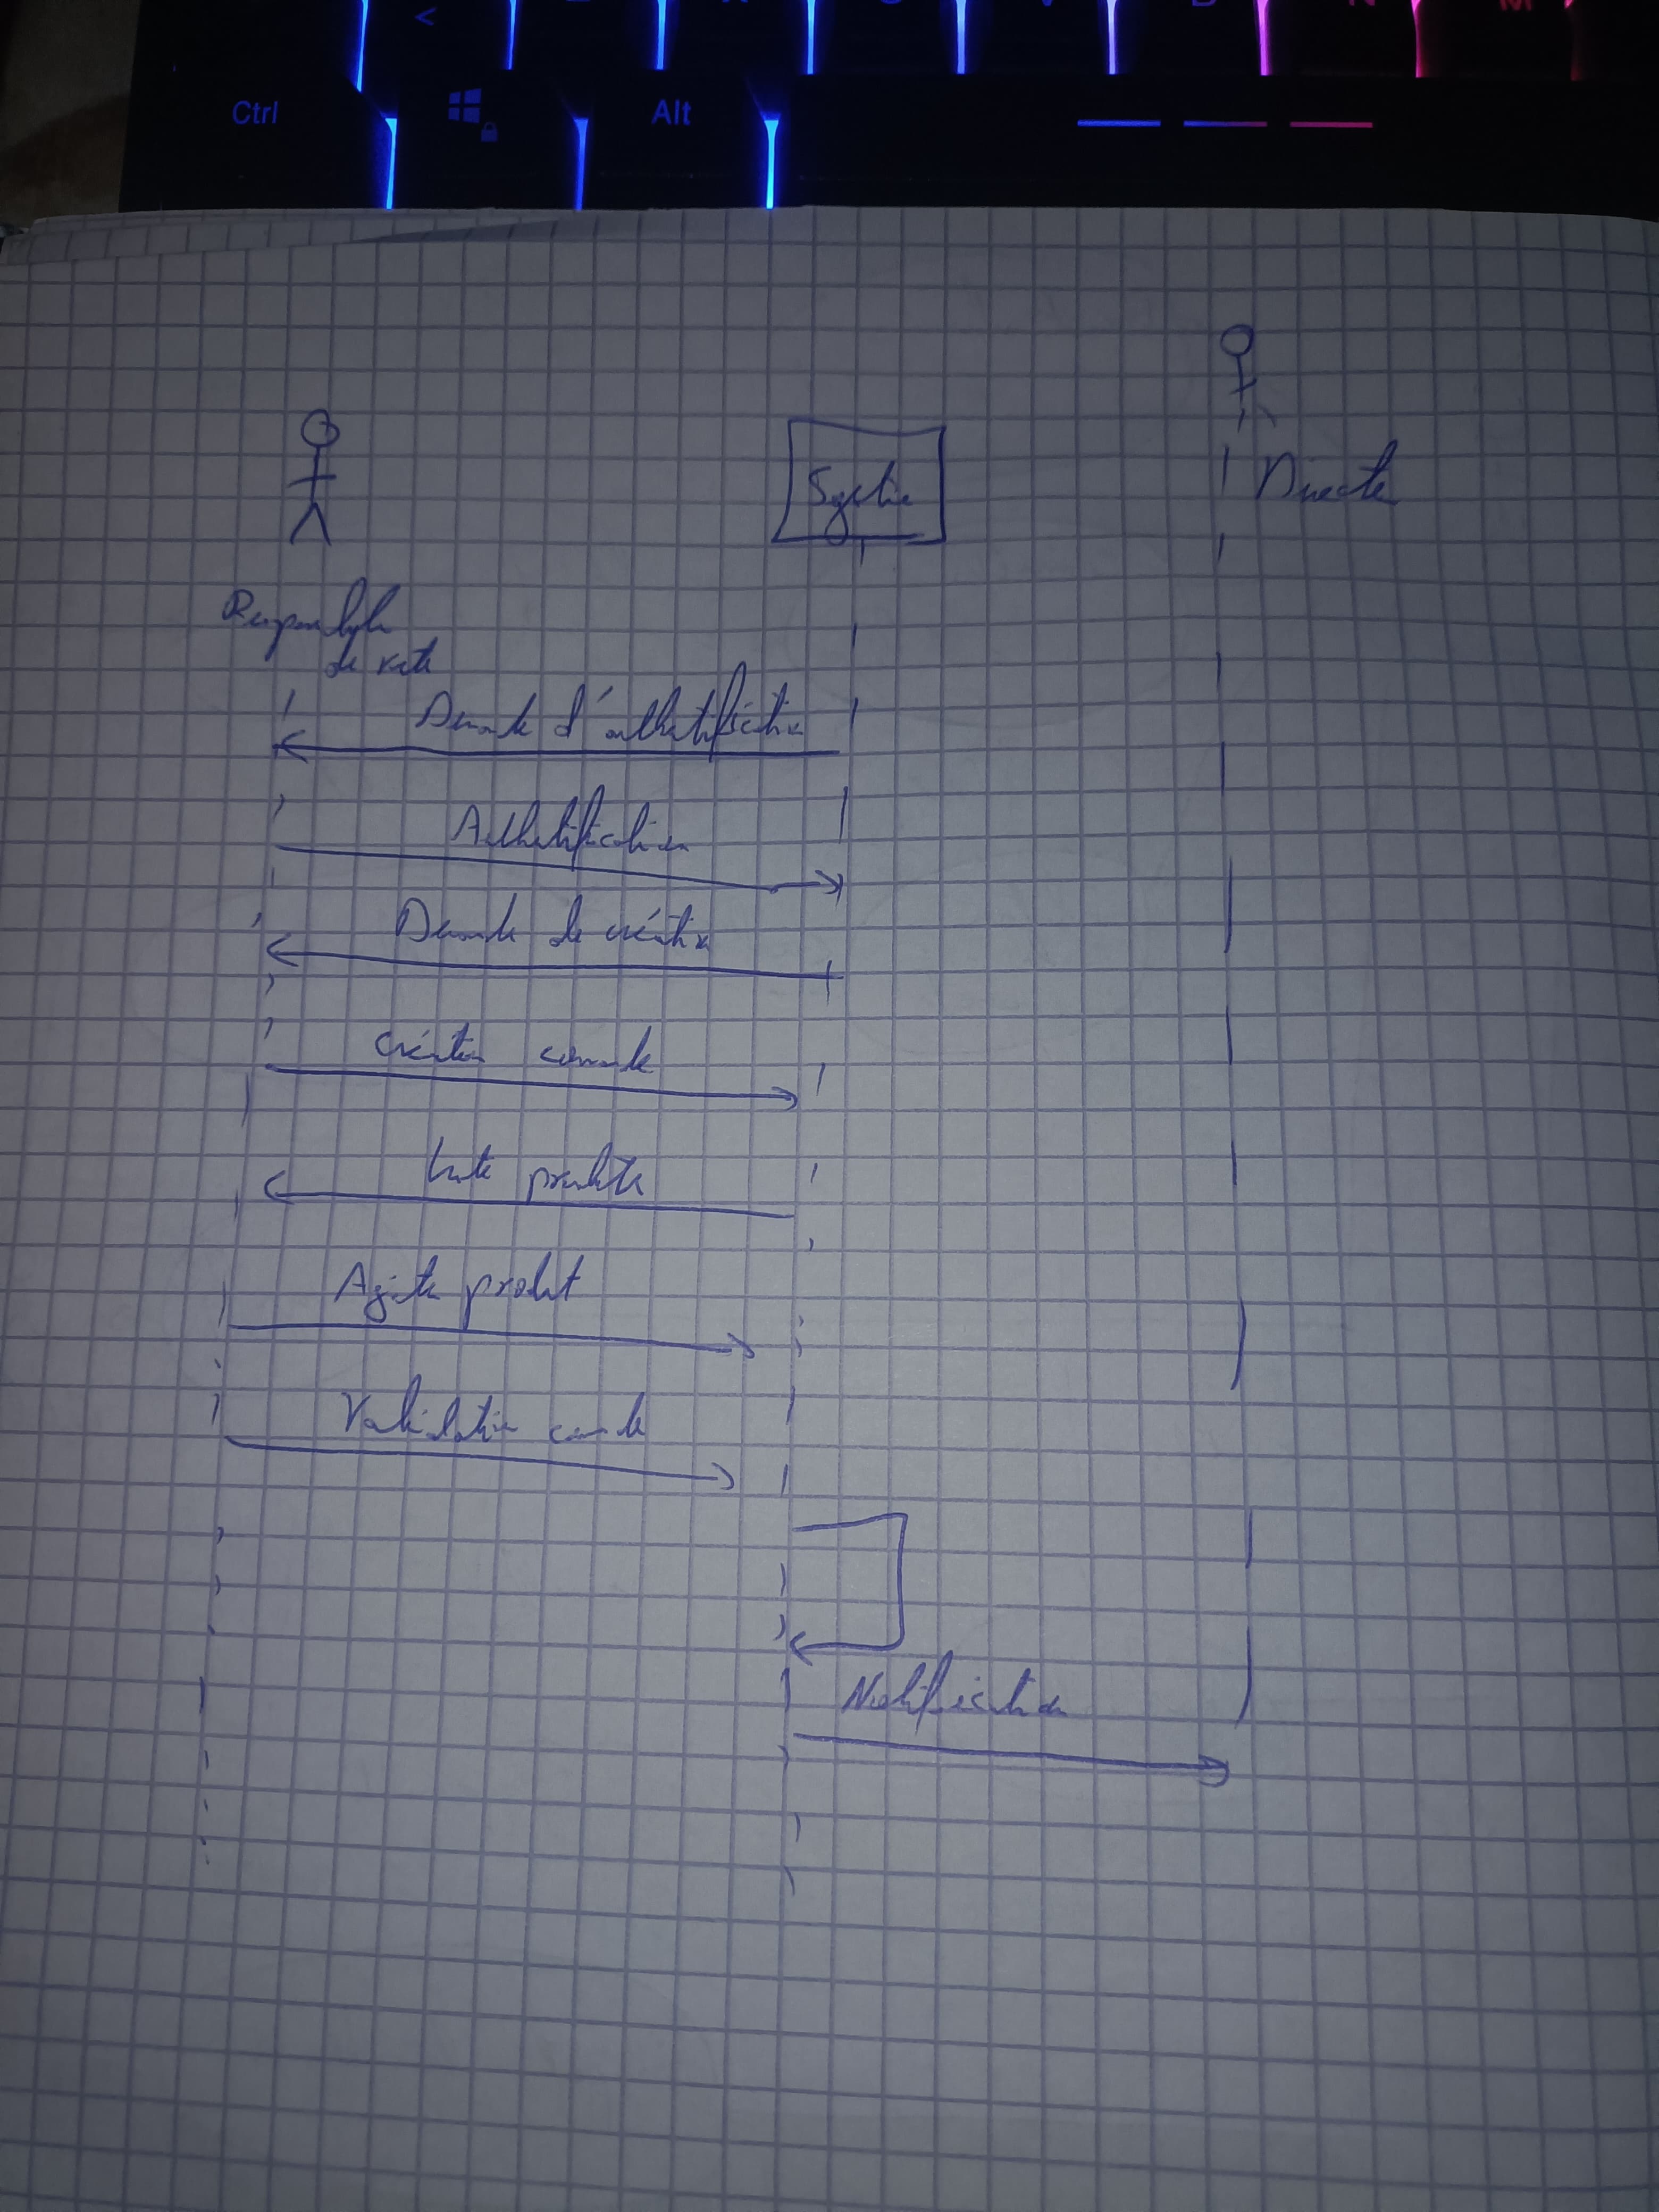 Ctrl
Alt
Système
Directeur
Responsable
de vente
Demande d'authentification
Authentification
Demande de création
Création commande
Liste produits
Ajouter produit
Validation commande
Notification